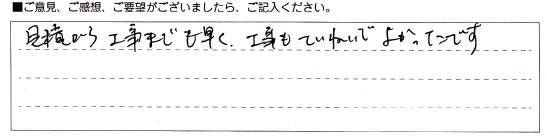 ■ご意見、ご感想、ご要望がございましたら、ご記入ください。
見積から工事までも早く、工事もていねいでよかったです